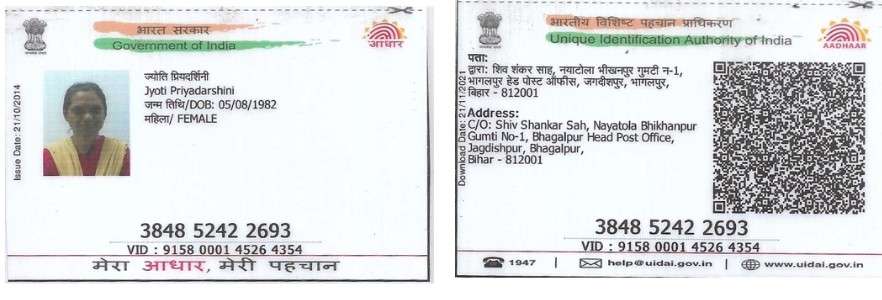 भारत सरकार
Government of India
आधार
Issue Date: 21/10/2014
ज्योति प्रियदर्शिनी
Jyoti Priyadarshini
जन्म तिथि/DOB: 05/08/1982
महिला/ FEMALE
3848 5242 2693
VID : 9158 0001 4526 4354
मेरा आधार, मेरी पहचान
भारतीय विशिष्ट पहचान प्राधिकरण
Unique Identification Authority of India
AADHAAR
Download Date: 21/11/2021
पता:
द्वारा: शिव शंकर साह, नयाटोला भीखनपुर गुमटी न-1,
भागलपुर हेड पोस्ट ऑफीस, जगदीशपुर, भागलपुर,
बिहार - 812001
Address:
C/O: Shiv Shankar Sah, Nayatola Bhikhanpur
Gumti No-1, Bhagalpur Head Post Office,
Jagdishpur, Bhagalpur,
Bihar - 812001
3848 5242 2693
VID : 9158 0001 4526 4354
1947 | help@uidai.gov.in | www.uidai.gov.in